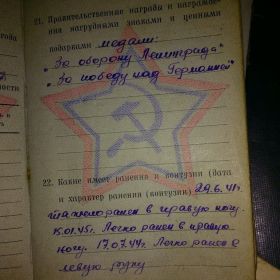 21. Правительственные награды и награжде-
ния нагрудными знаками и ценными
подарками медали:
"За оборону Ленинграда"
"За победу над Германией"
22. Какие имеет ранения и контузии (дата
и характер ранения (контузии) 29.6.41г.
тяжело ранен в правую ногу.
15.01.45г. Легко ранен в правую
ногу. 17.07.44г. Легко ранен в
левую руку